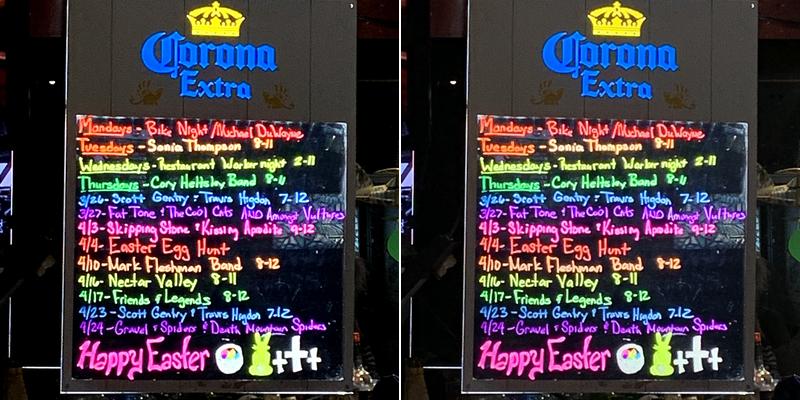 Corona
Extra
Mondays - Bike Night / Michael DuWayne
Tuesdays - Sonia Thompson 8-11
Wednesdays - Restaurant Worker night 2-11
Thursdays - Cory Heltsley Band 8-11
3/26- Scott Gentry & Travis Higdon 7-12
3/27- Fat Tone & The Cool Cats AND Amongst Vultures
4/3- Skipping Stone & Kissing Aprodite 9-12
4/4- Easter Egg Hunt
4/10- Mark Fleshman Band 8-12
4/16- Nectar Valley 8-11
4/17- Friends & Legends 8-12
4/23 - Scott Gentry & Travis Higdon 7-12
4/24- Gravel & Spiders & Death Mountain Spiders
Happy Easter
Corona
Extra
Mondays - Bike Night / Michael DuWayne
Tuesdays - Sonia Thompson 8-11
Wednesdays - Restaurant Worker night 2-11
Thursdays - Cory Heltsley Band 8-11
3/26- Scott Gentry & Travis Higdon 7-12
3/27- Fat Tone & The Cool Cats AND Amongst Vultures
4/3- Skipping Stone & Kissing Aprodite 9-12
4/4- Easter Egg Hunt
4/10- Mark Fleshman Band 8-12
4/16- Nectar Valley 8-11
4/17- Friends & Legends 8-12
4/23 - Scott Gentry & Travis Higdon 7-12
4/24- Gravel & Spiders & Death Mountain Spiders
Happy Easter